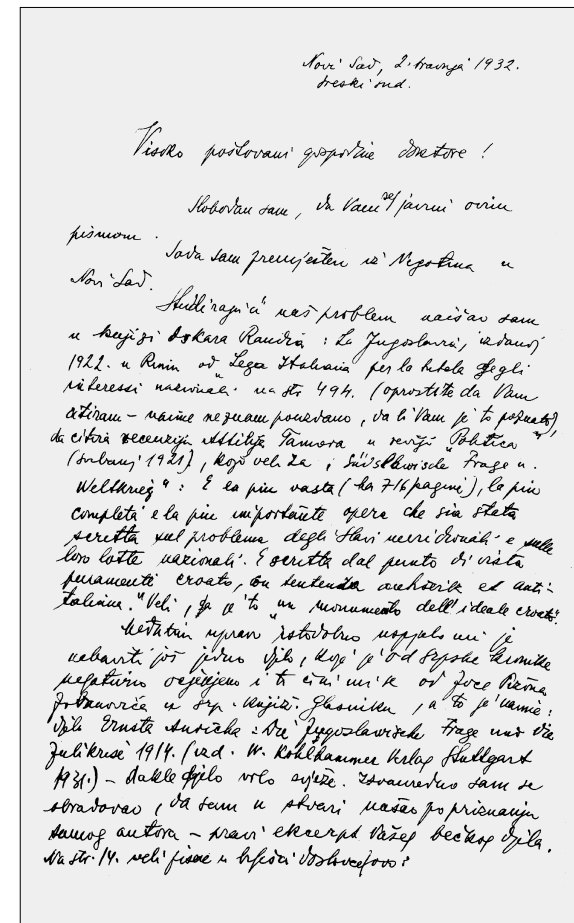 Novi Sad, 2. travnja 1932.
sreski sud.
Visoko poštovani gospodine doktore!
Slobodan sam, da Vam se javim ovim
pismom.
Sada sam premješten iz Negotina u
Novi Sad.
Studirajući naš problem naišao sam
u knjizi Oskara Randia: La Jugoslavia, izdanoj
1922. u Rimu od "Lega Italiana per la tutela degli
interessi nazionali" na str 494. (oprostite da Vam
citiram – naime neznam pouzdano, da li Vam je to poznato),
da citira recenziju Attilija Tamara u reviji "Politica"
(svibanj 1921), koji veli za "Südslawische Frage u.
Weltkrieg": E la piu vasta (ha 716 pagine), la piu
completa e la piu importante opera che sia stata
scritta sul problema degli Slavi meridionali e sulle
loro lotte nazionali. E scritta dal punto di vista
puramente croato, con
et anti-
taliana." Veli, da je to "un monumento dell'ideale croato".
Međutim upravo istodobno uspjelo mi je
nabaviti još jedno djelo, koje je od srpske kritike
negativno ocjenjeno i to čini mi se od Joce
Jovanovića u Srp. Knjiž. Glasniku, a to je naime:
djelo Ernsta Anricha: Die Jugoslawische Frage und die
Julikrise 1914. (izd. W. Kohlhammer Verlag Stuttgart
1931.) – dakle djelo vrlo svježe. Izvanredno sam se
obradovao, da sam u stvari našao po priznanju
samog autora – pravi ekscerpt Vašeg bečkog djela.
Na str. 14. veli pisac u bilješci doslovce ovo: